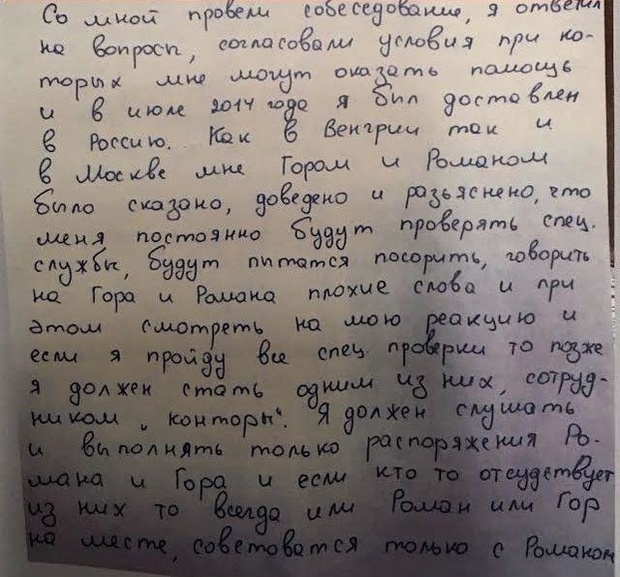 Со мной провели собеседование, я ответил
на вопросы, согласовали условия при ко-
торых мне могут оказать помощь
и в июле 2014 года я был доставлен
в Россию. Как в Венгрии так и
в Москве мне Гором и Романом
было сказано, доведено и разъяснено, что
меня постоянно будут проверять спец.
службы, будут питатся посорить, говорить
на Гора и Романа плохие слова и при
этом смотреть на мою реакцию и
если я пройду все спец. проверки то позже
я должен стать одним из них, сотруд-
ником „конторы". Я должен слушать
и выполнять только распоряжения Ро-
мана и Гора и если кто то отсудствует
из них то всегда или Роман или Гор
на месте, советоватся только с Романом